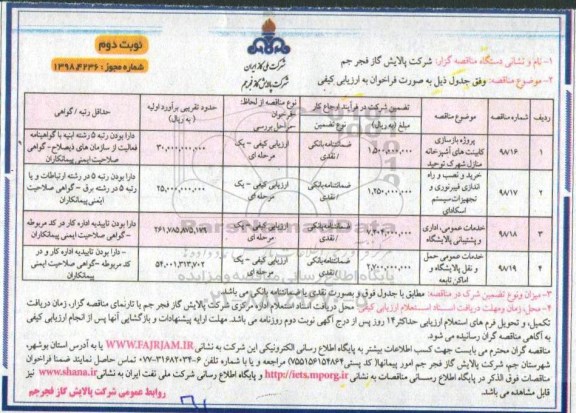 نوبت دوم
شماره مجوز: ۱۳۹۸.۴۲۳۶
شرکت ملی گاز ایران
شرکت پالایش گاز فجر جم
۱- نام و نشانی دستگاه مناقصه گزار: شرکت پالایش گاز فجر جم
۲- موضوع مناقصه: وفق جدول ذیل به صورت فراخوان به ارزیابی کیفی
ردیف شماره مناقصه موضوع مناقصه تضمین شرکت در فرآیند ارجاع کار نوع مناقصه از لحاظ: حدود تقریبی برآورد اولیه (به ریال) حداقل رتبه / گواهی
مبلغ (به ریال) نوع تضمین -فراخوان -مراحل بررسی
۱ ۹۸/۱۶ پروژه بازسازی کابینت های آشپزخانه منازل شهرک توحید ۱,۵۰۰,۰۰۰,۰۰۰ ضمانتنامه بانکی / نقدی ارزیابی کیفی - یک مرحله ای ۳۰,۰۰۰,۰۰۰,۰۰۰ دارا بودن رتبه ۵ رشته ابنیه با گواهینامه فعالیت از سازمان های ذیصلاح- گواهی صلاحیت ایمنی پیمانکاران
۲ ۹۸/۱۷ خرید و نصب و راه اندازی فیبرنوری و تجهیزات سیستم اسکادای ۱,۲۵۰,۰۰۰,۰۰۰ ضمانتنامه بانکی / نقدی ارزیابی کیفی - یک مرحله ای ۲۵,۰۰۰,۰۰۰,۰۰۰ دارا بودن رتبه ۵ در رشته ارتباطات و یا رتبه ۵ در رشته برق - گواهی صلاحیت ایمنی پیمانکاران
۳ ۹۸/۱۸ خدمات عمومی، اداری و پشتیبانی پالایشگاه ضمانتنامه بانکی / نقدی ارزیابی کیفی - یک مرحله ای ۲۶۱,۷۸۵,۸۷۵,۱۷۹ دارا بودن تاییدیه اداره کار در کد مربوطه -گواهی صلاحیت ایمنی پیمانکاران
۴ ۹۸/۱۹ خدمات عمومی حمل و نقل پالایشگاه و اماکن تابعه ۲,۷۰۰,۰۰۰,۰۰۰ ضمانتنامه بانکی / نقدی ارزیابی کیفی - یک مرحله ای ۵۴,۰۰۱,۳۱۳,۷۰۲ - دارا بودن تاییدیه اداره کار و در کد مربوطه -گواهی صلاحیت ایمنی پیمانکاران
۳- میزان ونوع تضمین شرکت در مناقصه: مطابق با جدول فوق و بصورت نقدی یا ضمانتنامه بانکی می باشد.
۴- محل، زمان ومهلت دریافت اسناد استعلام ارزیابی کیفی: محل دریافت اسناد استعلام اداره مرکزی شرکت پالایش گاز فجر جم یا تارنمای مناقصه گزار، زمان دریافت
تکمیل، و تحویل فرم های استعلام ارزیابی حداکثر ۱۴ روز پس از درج آگهی نوبت دوم روزنامه می باشد. مهلت ارایه پیشنهادات و بازگشایی آنها پس از انجام ارزیابی کیفی
به آگاهی مناقصه گران رسانیده می شود.
مناقصه گران محترم می بایست جهت کسب اطلاعات بیشتر به پایگاه اطلاع رسانی الکترونیکی این شرکت به نشانی WWW.FAJRJAM.IR یا به آدرس استان بوشهر،
شهرستان جم، شرکت پالایش گاز فجر جم امور پیمانها( کد پستی ۷۵۵۱۵۶۱۵۴۸۶۴) مراجعه و یا با شماره تلفن ۶-۰۷۷۳۱۶۸۲۰۳۴ تماس حاصل نمایند ضمنا فراخوان
مناقصات فوق الذکر در پایگاه اطلاع رسانی مناقصات به نشانی http://iets.mporg.ir و پایگاه اطلاع رسانی شرکت ملی نفت ایران به نشانی www.shana.ir نیز
قابل مشاهده می باشد.
روابط عمومی شرکت پالایش گاز فجر جم
ParsNamadData